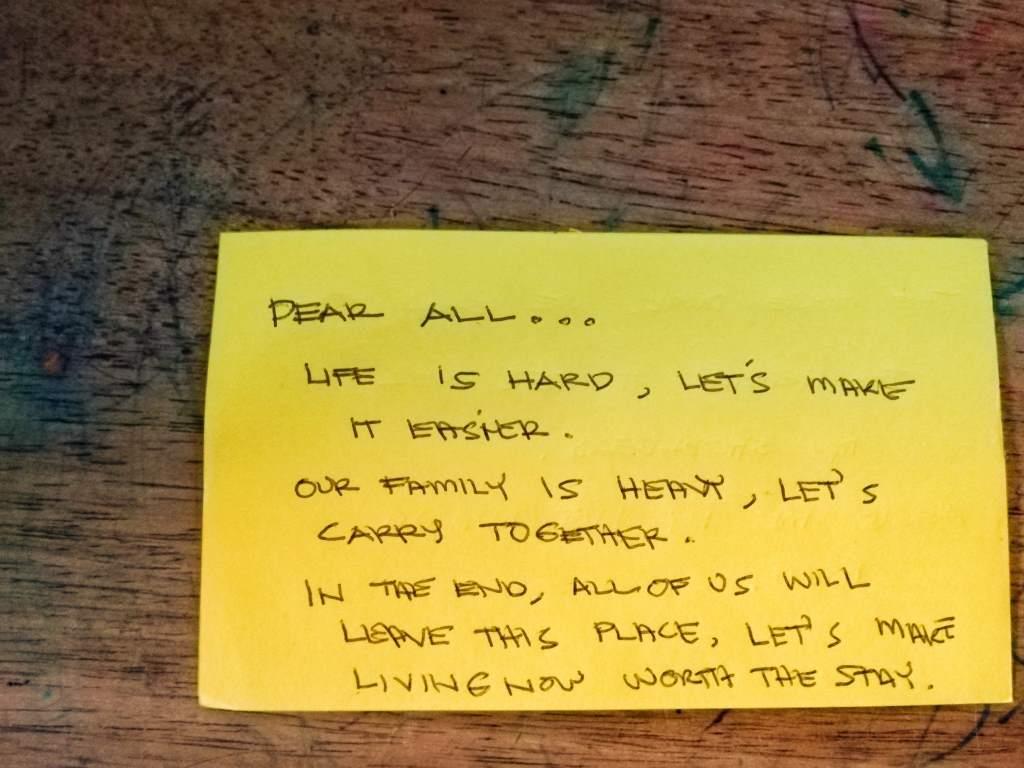 DEAR ALL...
LIFE IS HARD, LET'S MAKE
IT EASIER.
OUR FAMILY IS HEAVY, LET'S
CARRY TOGETHER.
IN THE END, ALL OF US WILL
LEAVE THIS PLACE, LET'S MAKE
LIVING NOW WORTH THE STAY.